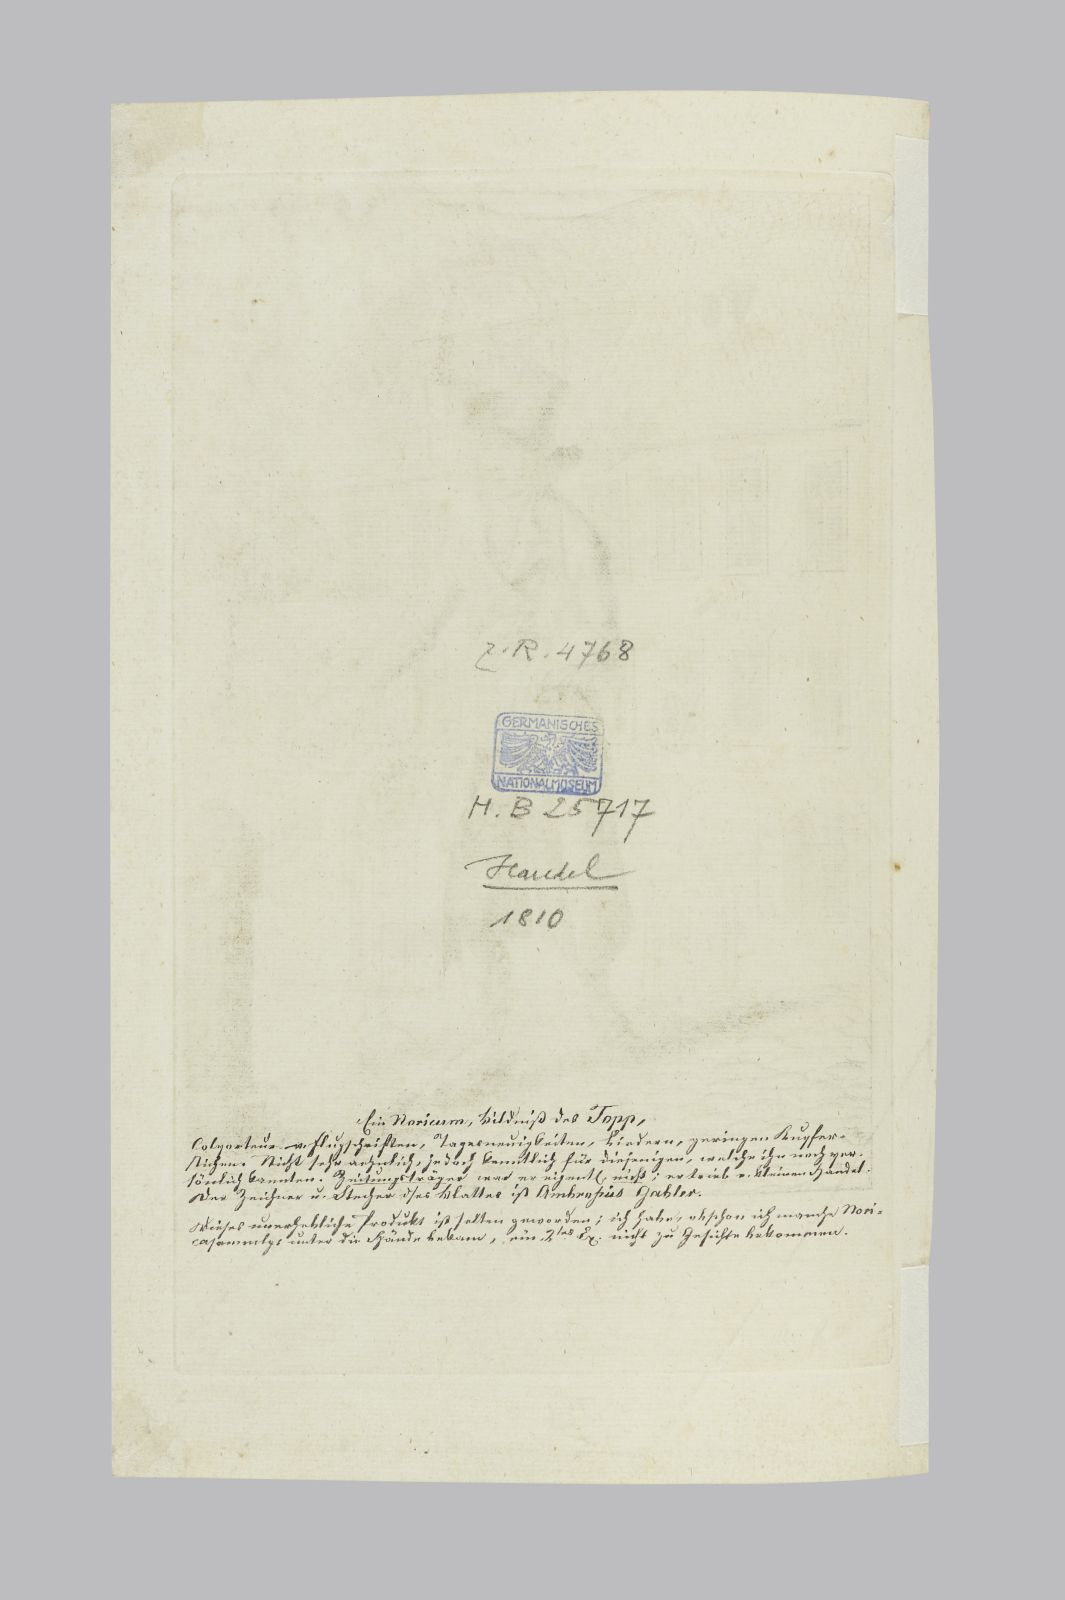 Z.R. 4768
GERMANISCHES
NATIONALMUSEUM
H.B 25717
Handel
1810
Ein Noricum, Bildniß des Topp,
Colporteur v. Flugschriften, Tagesneuigkeiten, Liedern, geringen Kupfer-
stichen. Nicht sehr aehnlich, jedoch kenntlich für diejenigen, welche ihn noch per-
sönlich kannten. Zeitungsträger war er eigentl. nicht; er trieb e. kleinen Handel.
Der Zeichner u. Stecher dses Blattes ist Ambrosius Gabler.
Dieses unerhebliche Produkt ist selten geworden; ich habe, obschon ich manche Nori-
casammlgs unter die Hände bekam, ein 2tes Ex. nicht zu Gesichte bekommen.